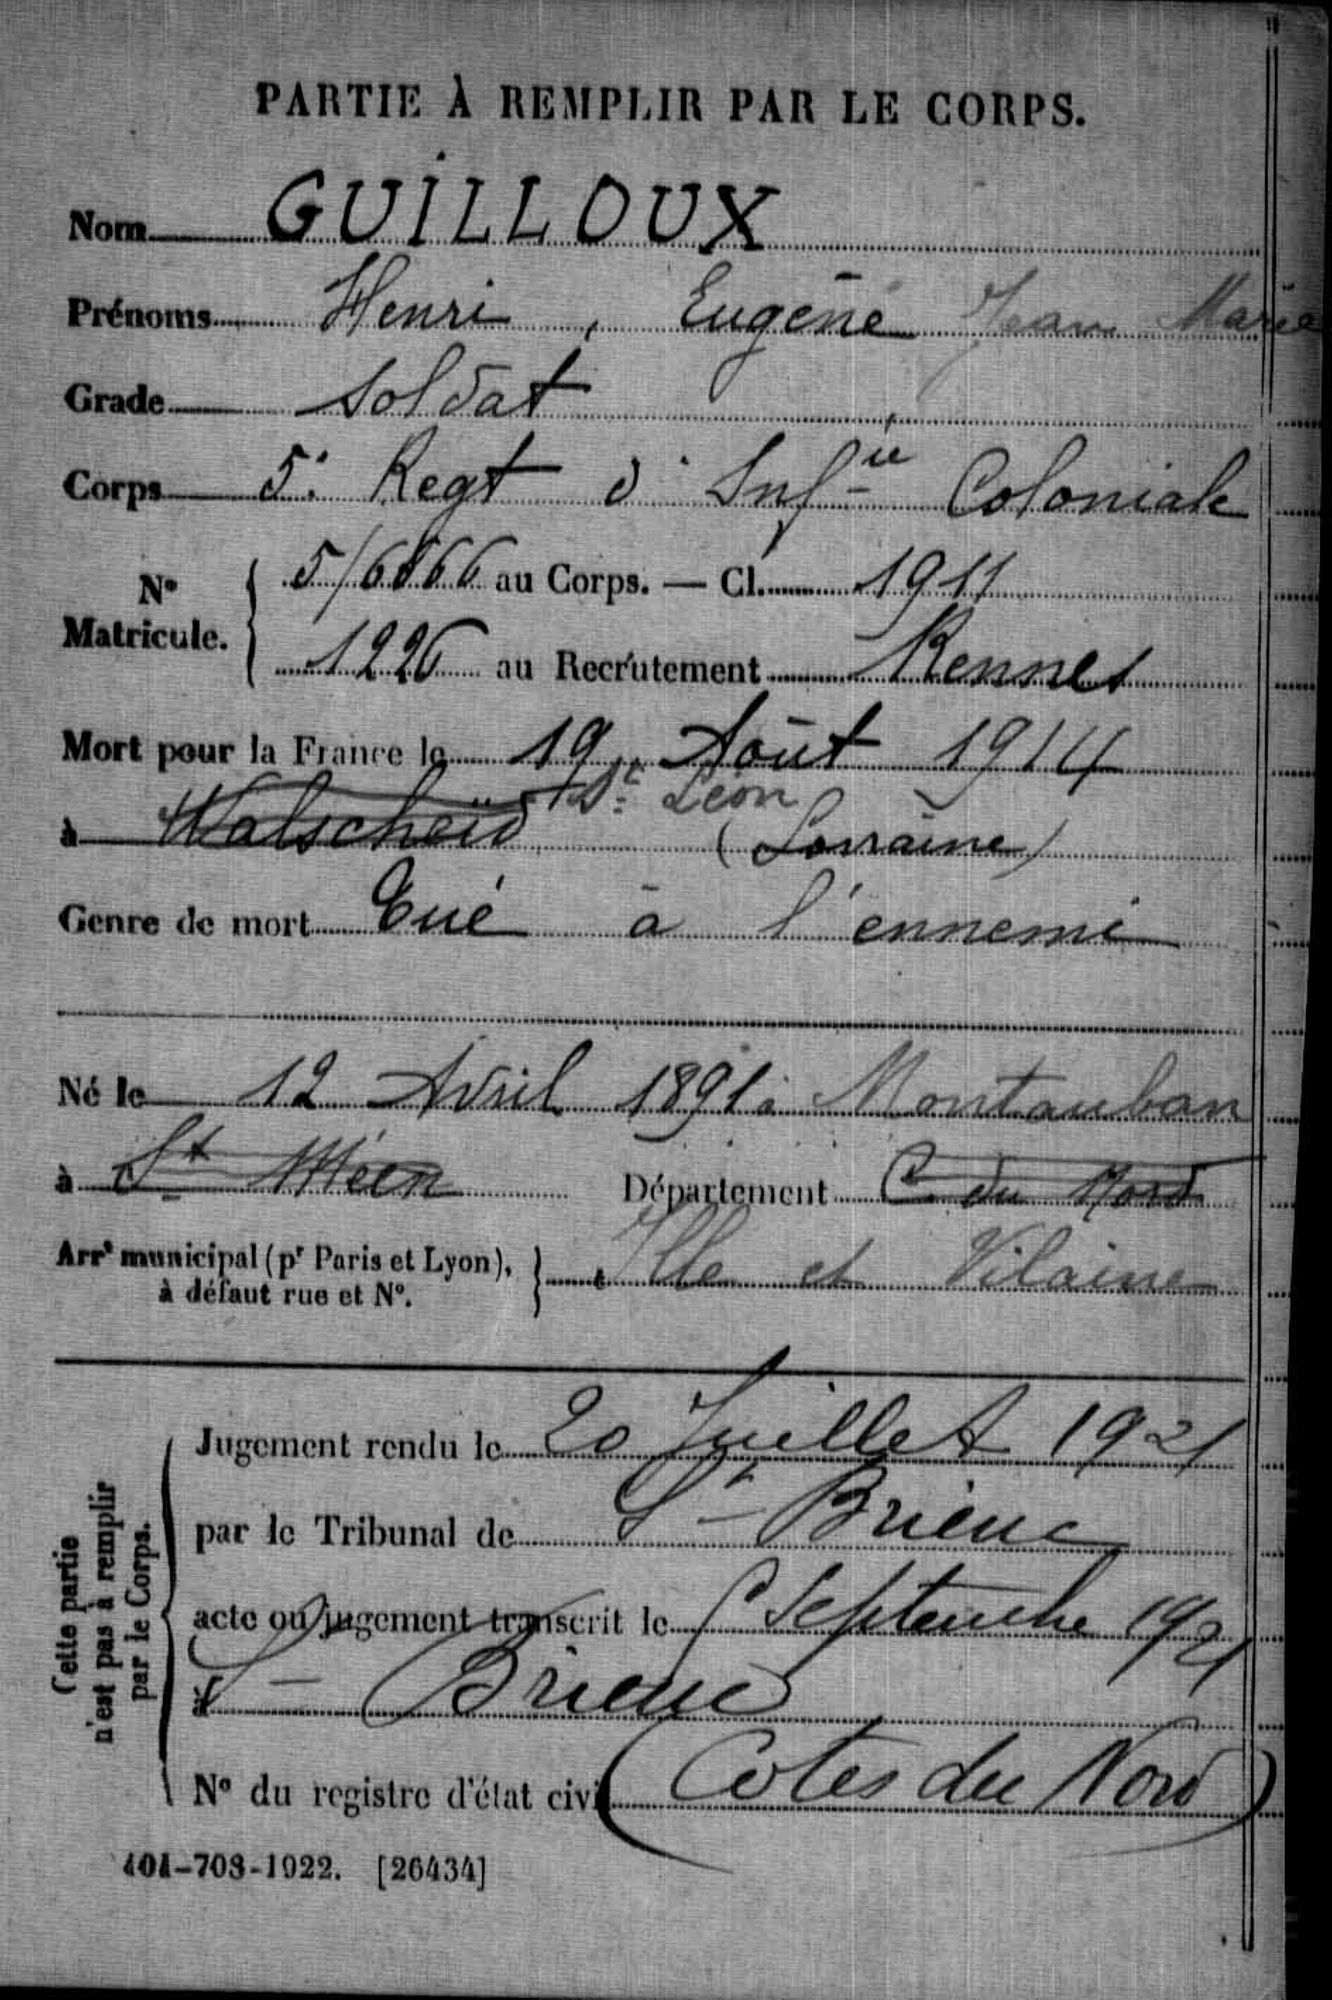 PARTIE À REMPLIR PAR LE CORPS.
Nom GUILLOUX
Prénoms Henri, Eugène Jean Marie
Grade Soldat
Corps 5e Regt d'Infie Coloniale
No Matricule. { 5/6866 au Corps. — Cl. 1911
1226 au Recrutement Rennes
Mort pour la France le 19 Août 1914
St Léon
à Walscheid (Lorraine)
Genre de mort Tué à l'ennemi
Né le 12 Avril 1891 à Montauban
à St Méen Département C. du Nord
Arrt municipal (pr Paris et Lyon), à défaut rue et No. } Ille et Vilaine
Cette partie n'est pas à remplir par le Corps.
Jugement rendu le 20 Juillet 1921
par le Tribunal de St-Brieuc
acte ou jugement transcrit le Septembre 1921
à St-Brieuc
No du registre d'état civil (Cotes du Nord)
101-708-1922. [26434]